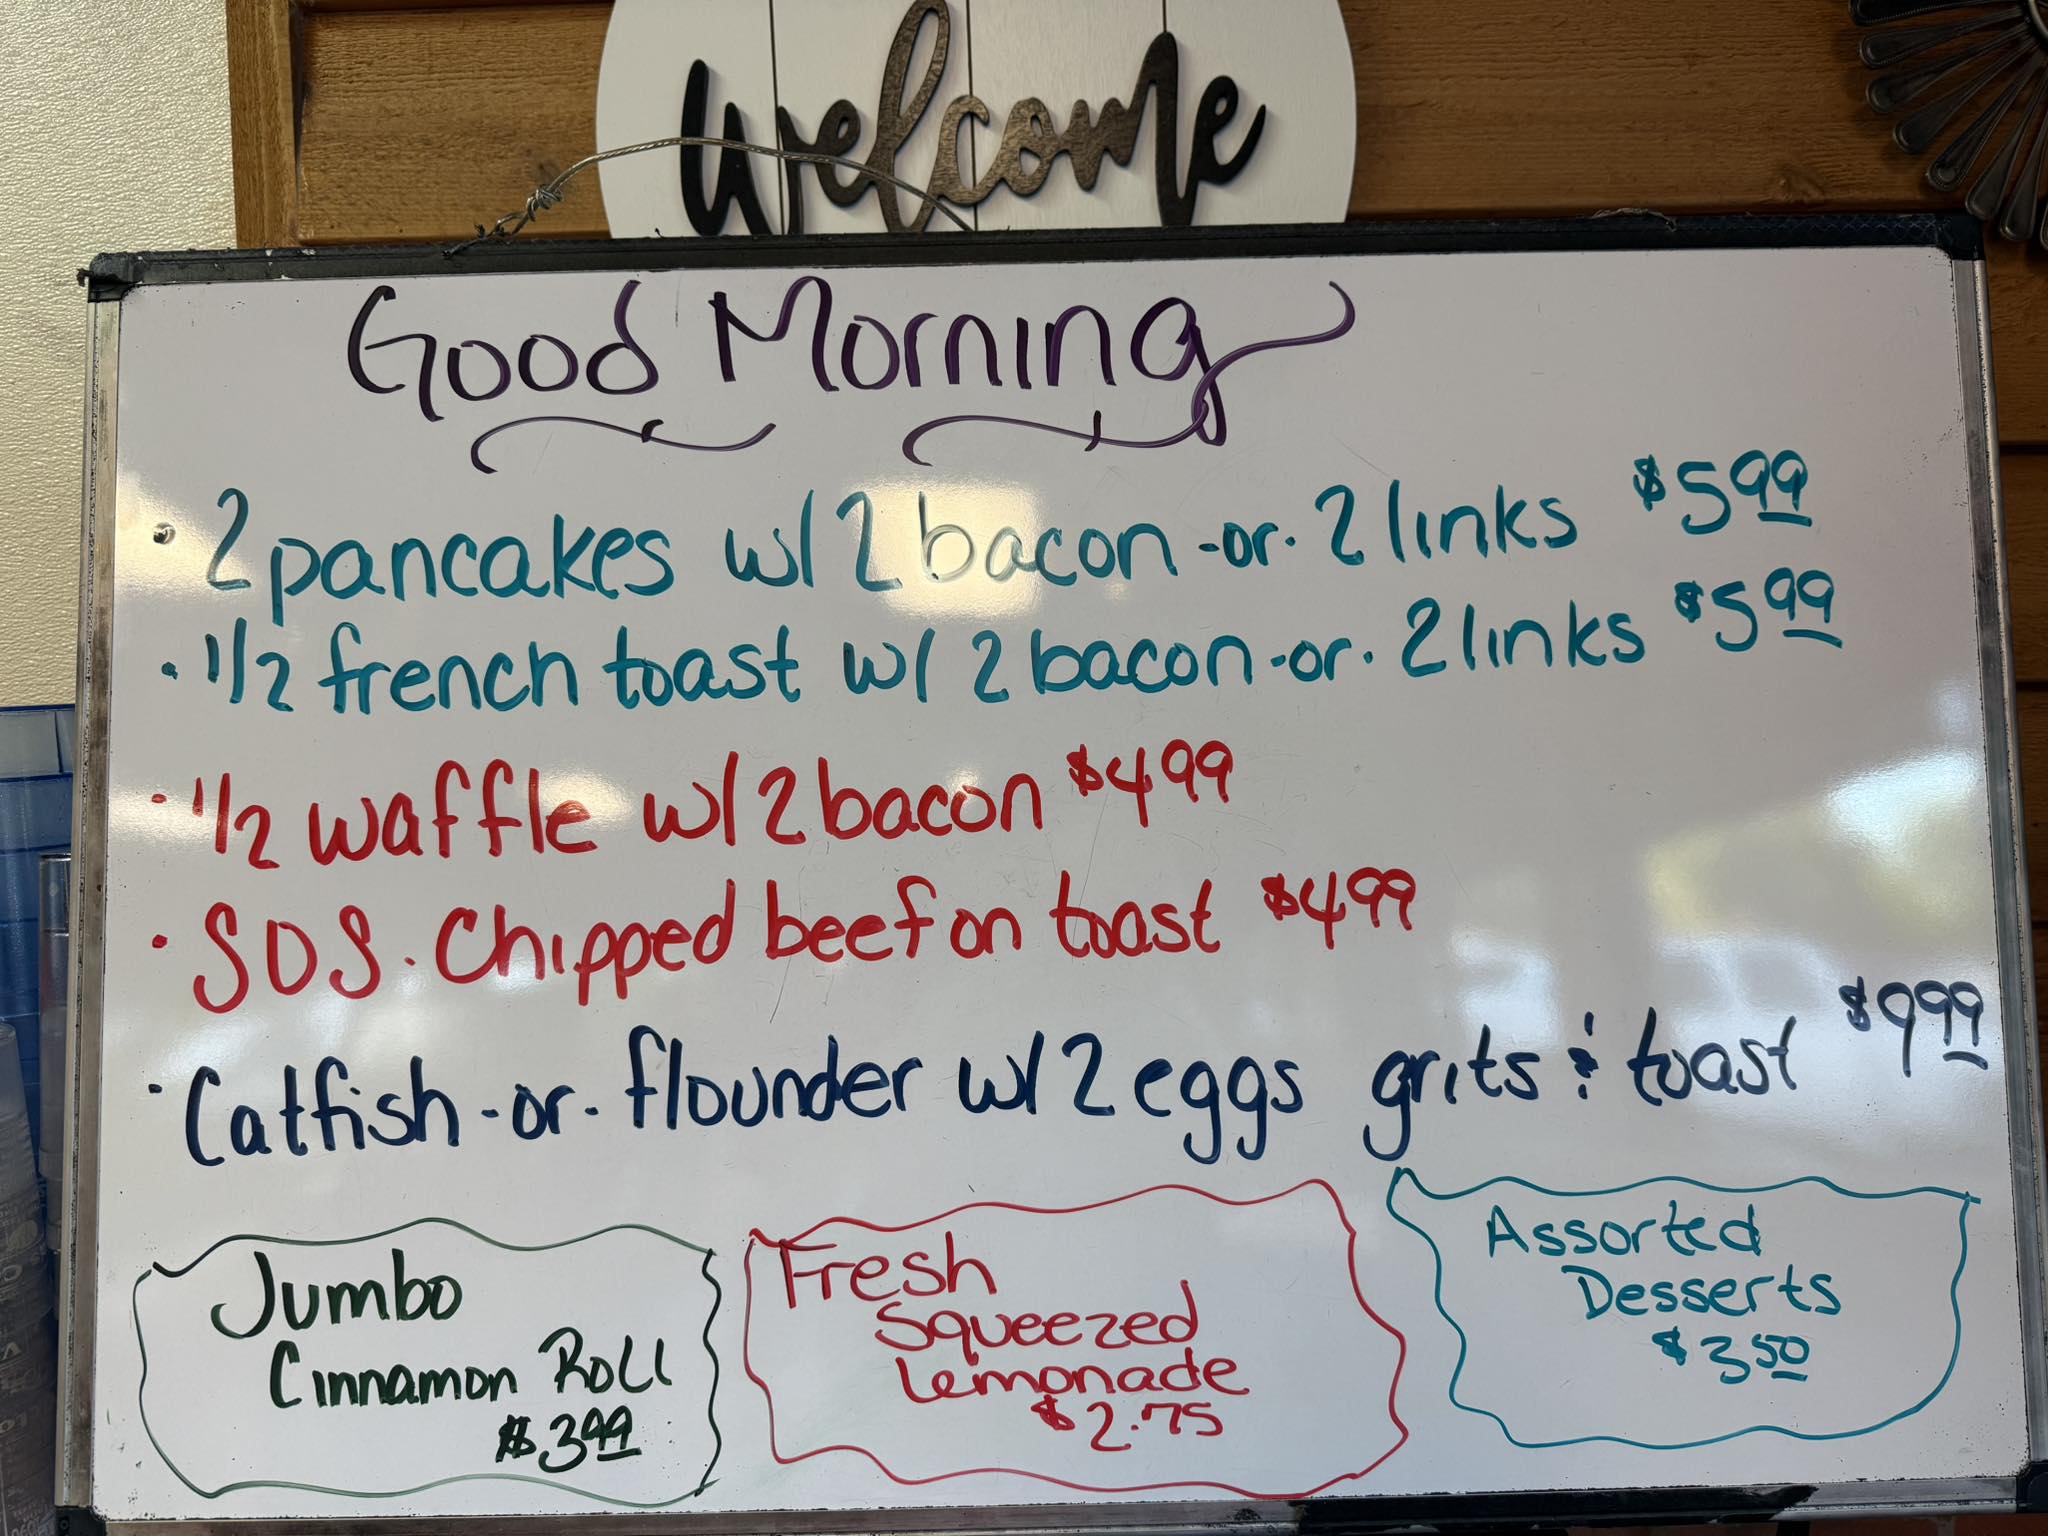 Welcome
Good Morning
• 2 pancakes w/ 2 bacon -or- 2 links $5.99
• 1/2 french toast w/ 2 bacon -or- 2 links $5.99
• 1/2 waffle w/ 2 bacon $4.99
• SOS. Chipped beef on toast $4.99
• Catfish -or- flounder w/ 2 eggs grits & toast $9.99
Jumbo
Cinnamon Roll
$3.99
Fresh
Squeezed
Lemonade
$2.75
Assorted
Desserts
$3.50